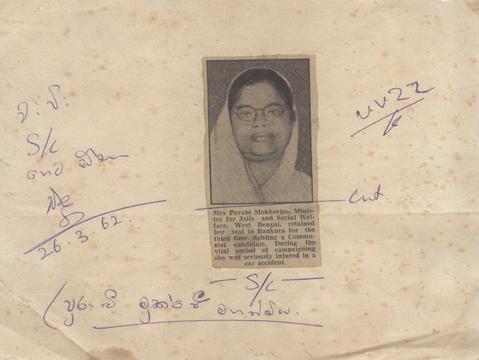 ච: ච:
S/c
26.3.62.
Cut
Mrs Purabi Mukherjee, Minis-
ter for Jails and Social Wel-
fare, West Bengal, retained
her seat in Bankura for the
third time, fighting a Commu-
nist candidate. During the
vital period of campaigning
she was seriously injured in a
car accident.
S/c
(පුරාබී මුකර්ජී මහත්මිය.